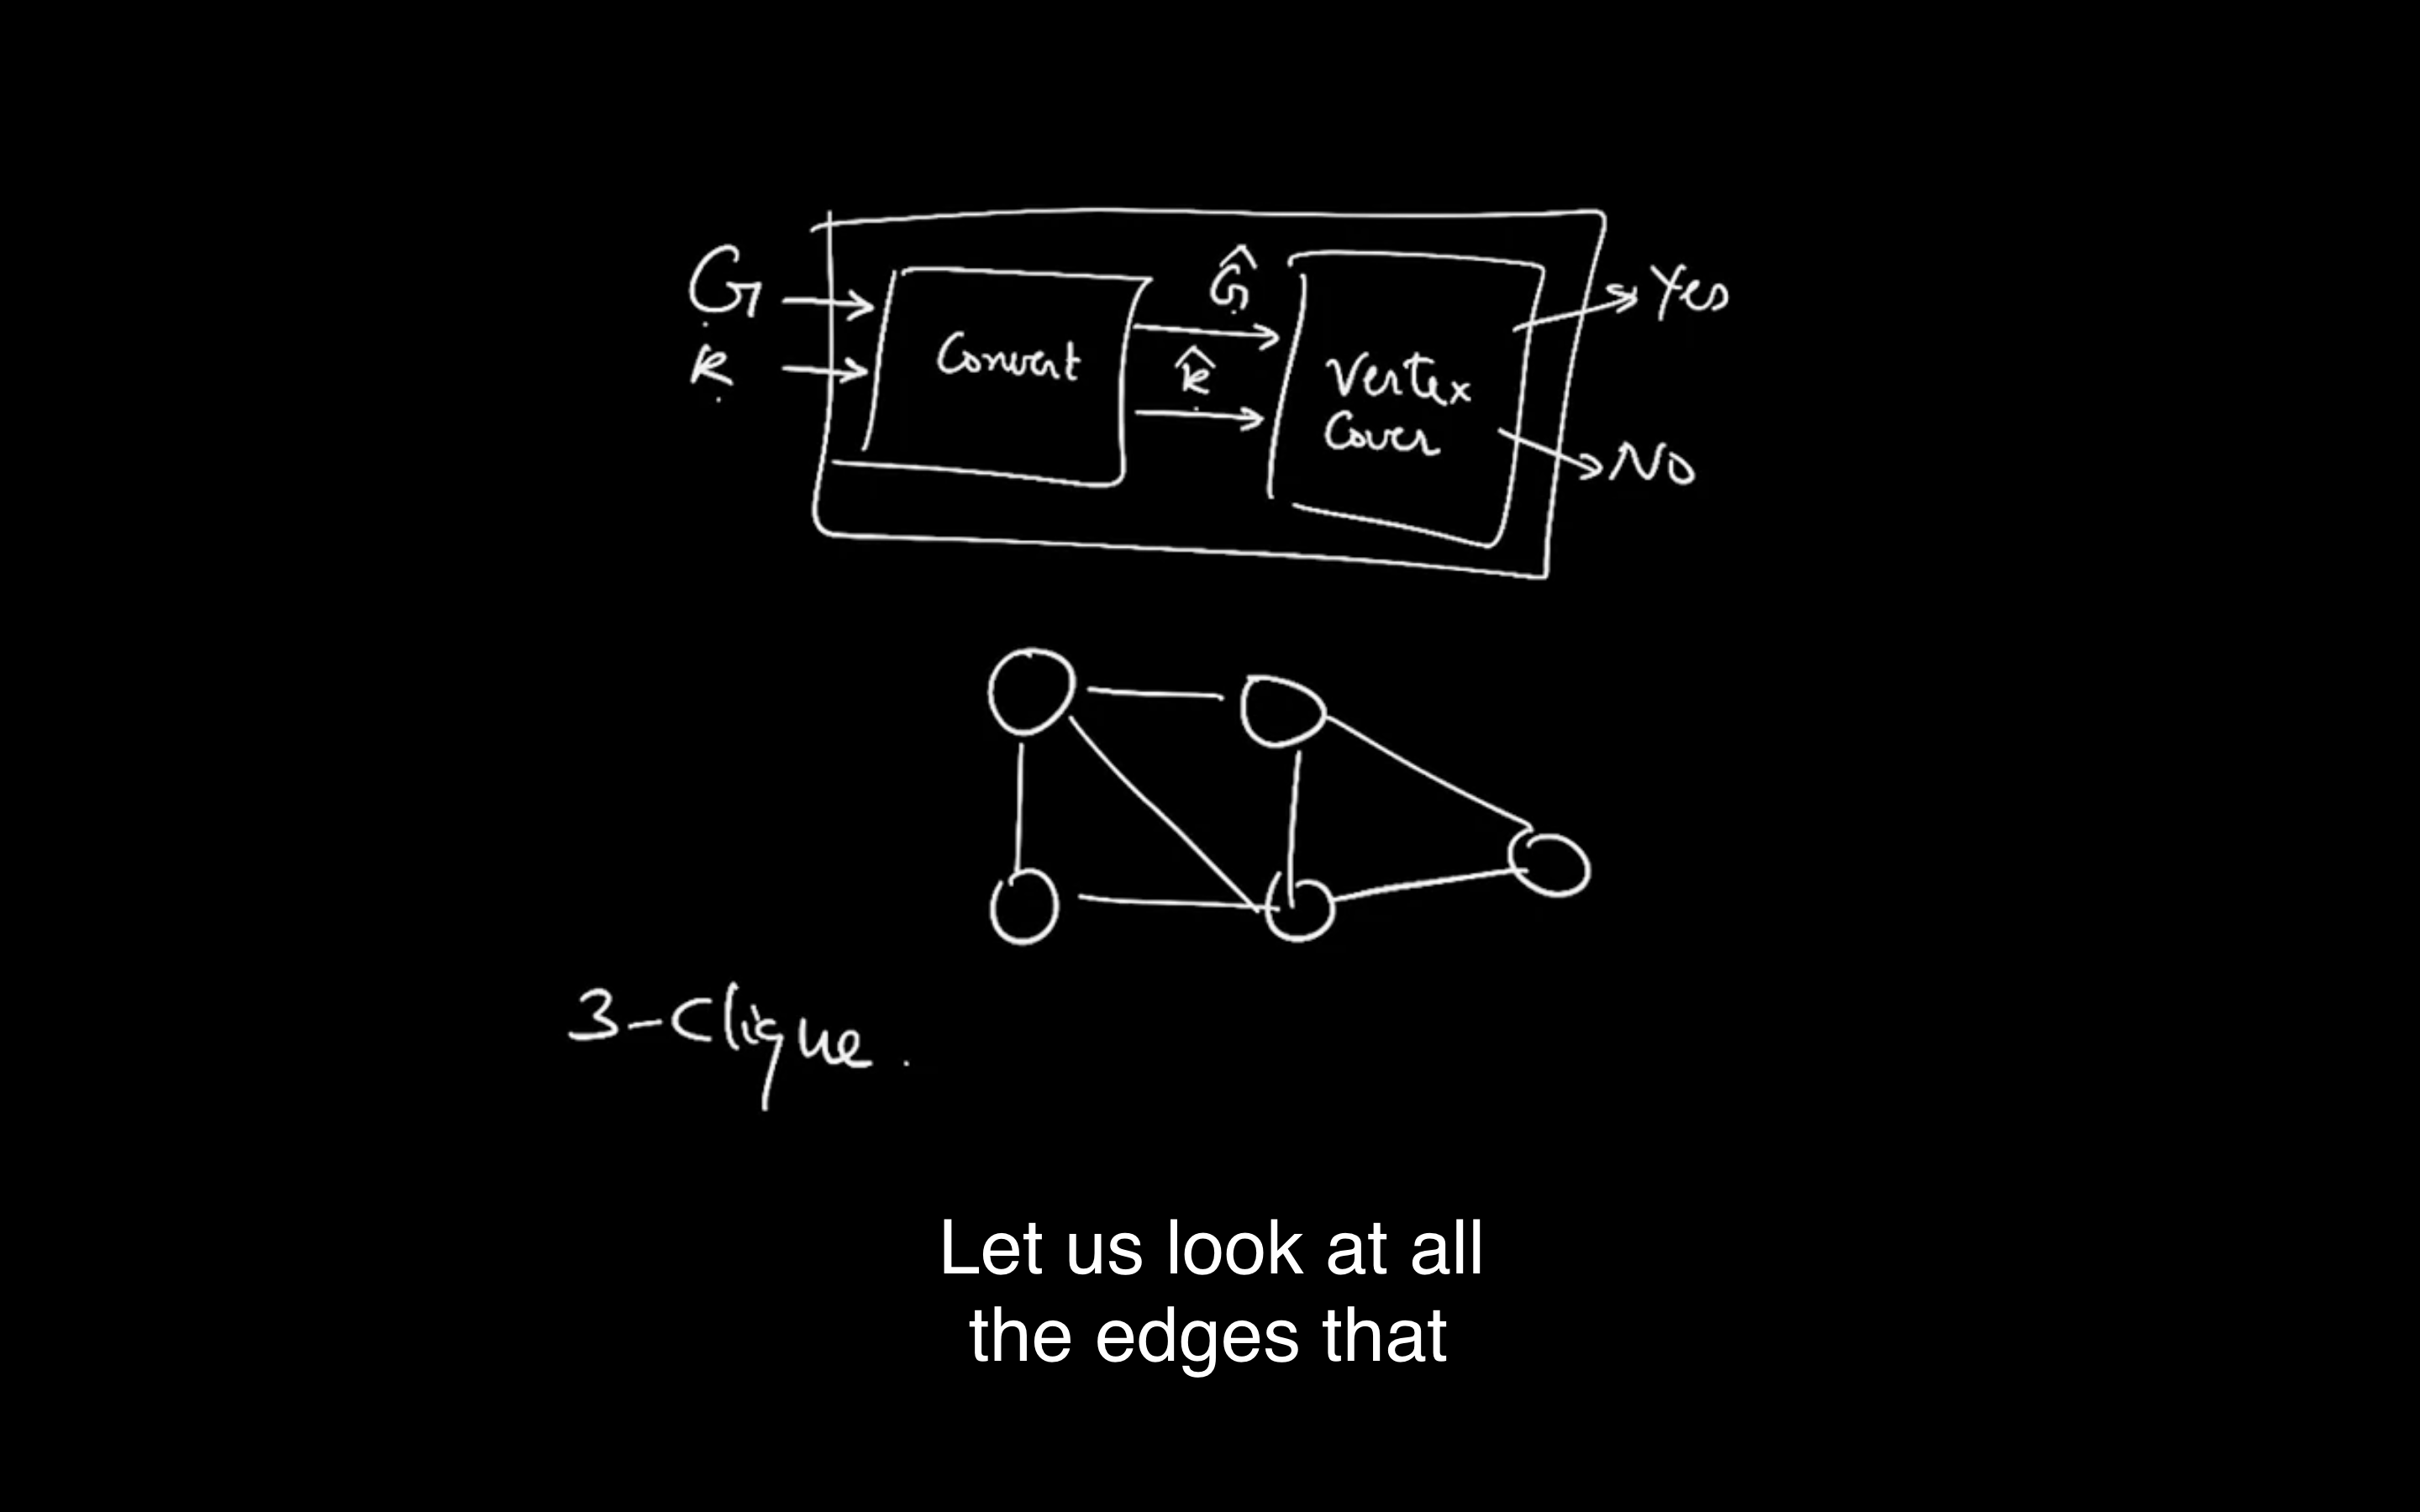 G
k
Convert
Ĝ
k̂
Vertex
Cover
Yes
No
3-Clique.
Let us look at all
the edges that